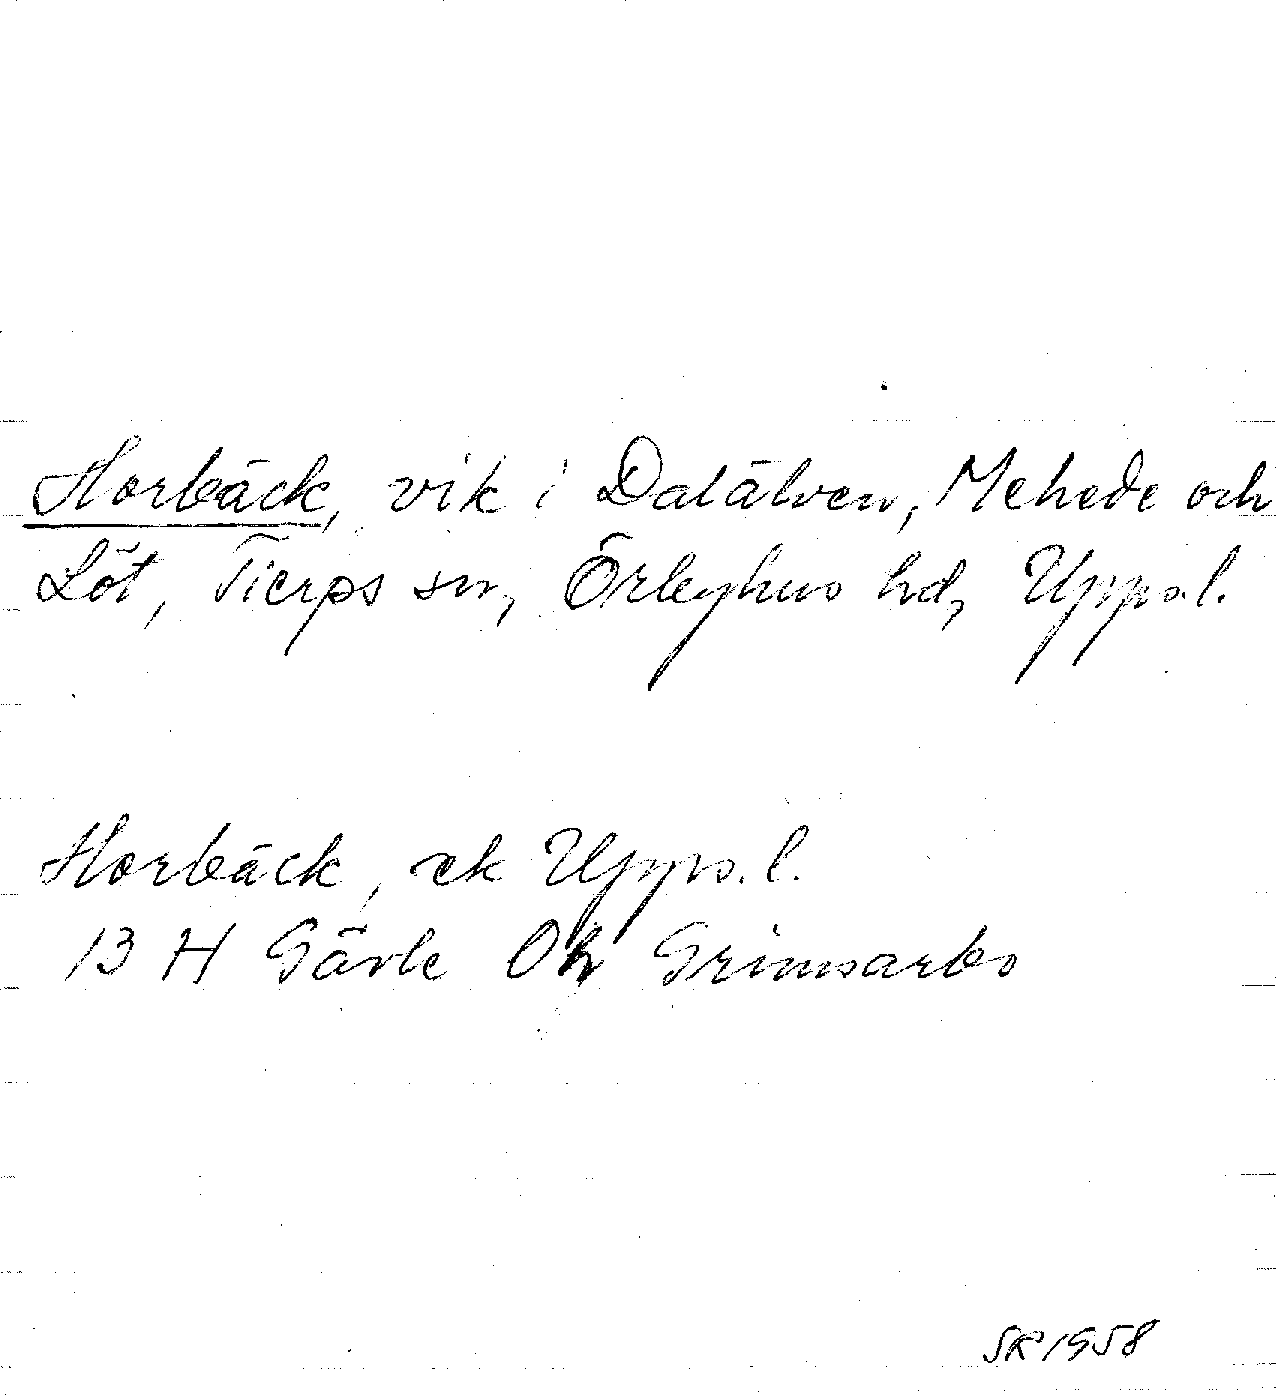 Horbäck, vik i Dalälven, Mehede och
Löt, Tierps sn, Örbyhus hd, Upps.l.
Horbäck, ek Upps.l.
13 H Gävle Grimsarbo
SR 1958